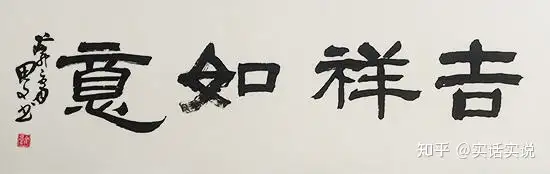 吉祥如意
知乎 @实话实说